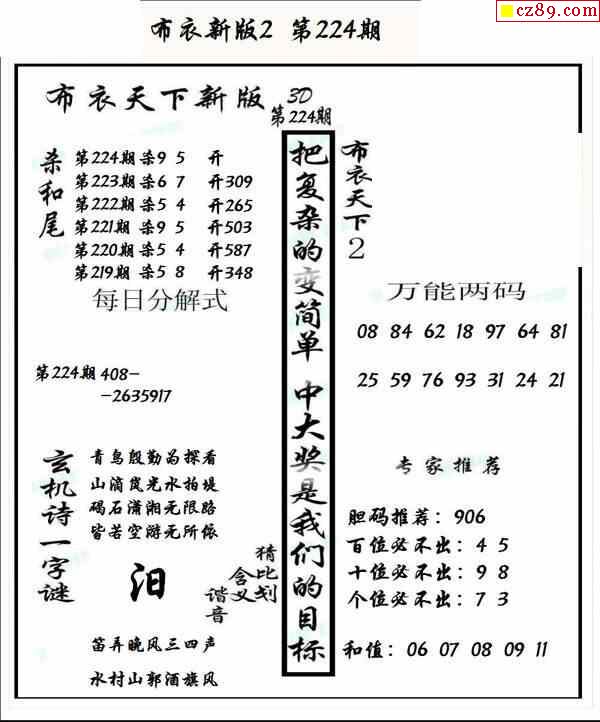 cz89.com
布衣新版2 第224期
布衣天下新版 3D
第224期
杀和尾
第224期 杀9 5 开
第223期 杀6 7 开309
第222期 杀5 4 开265
第221期 杀9 5 开503
第220期 杀5 4 开587
第219期 杀5 8 开348
每日分解式
第224期 408-
-2635917
玄机诗一字谜
青鸟殷勤为探看
山滴岚光水拍堤
碣石潇湘无限路
皆若空游无所依
汨
猜比划
含义
谐音
笛弄晚风三四声
水村山郭酒旗风
把复杂的变简单 中大奖是我们的目标
布衣天下2
万能两码
08 84 62 18 97 64 81
25 59 76 93 31 24 21
专家推荐
胆码推荐：906
百位必不出：4 5
十位必不出：9 8
个位必不出：7 3
和值：06 07 08 09 11